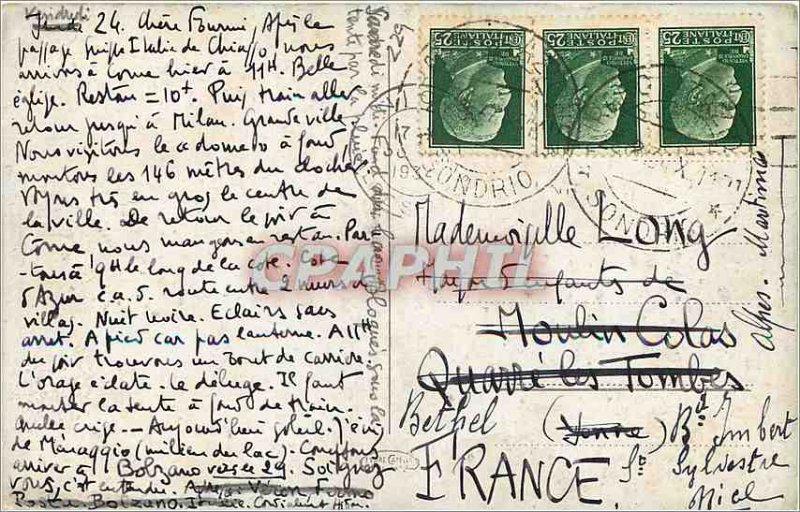 Vendredi
24. Chère Fourmi, Après le
passage Suisse Italie de Chiasso nous
arrivons à Come hier à 11H. Belle
église. Restau = 10+. Puis train aller
retour jusqu'à Milan. Grande ville
Nous visitons le domo à fond,
montons les 146 mètres du clocher
Voyons très en gros le centre de
la ville. De retour le soir à
Come nous mangeons en restau. Par
-tons à 9H le long de la cote. Cote
d'Azur c.a.d. route entre 2 murs de
villas. Nuit noire. Eclairs sans
arret. A pied car pas lanterne. A 11H
du soir trouvons un bout de carrière.
L'orage éclate. Le déluge. Il faut
monter la tente à fond de train.
Aujourd'hui soleil. J'écris
de Menaggio (milieu du lac). Comptons
arriver à Bolzano vers le 29. Soignez
vous, c'est entendu.
Poste. Bolzano. Italie. Cordialement
bloqués sous la
tente par la pluie.
POSTE ITALIANE
CENT 25
POSTE ITALIANE
CENT 25
POSTE ITALIANE
CENT 25
SONDRIO
SONDRIO
Mademoiselle LONG
Enfants de
Moulin Colas
Quarré les Tombes
(Yonne)
Bethel
Bd Imbert
St Sylvestre
Nice
Alpes-Maritimes
FRANCE
CPAPHIL